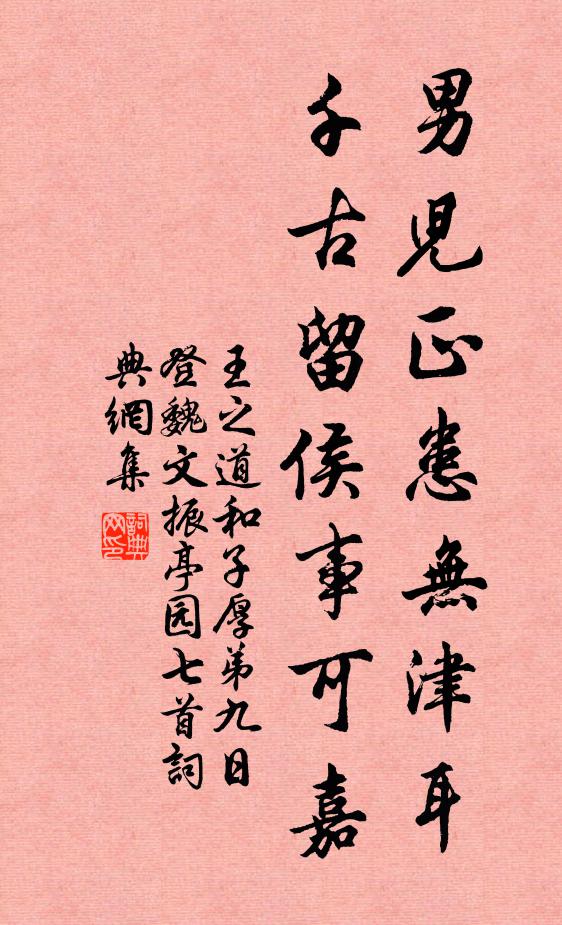 男児正患無津耳
千古留侯事可嘉
王之道和子厚弟九日
登魏文振亭园七首詞
典網集
詞典网印